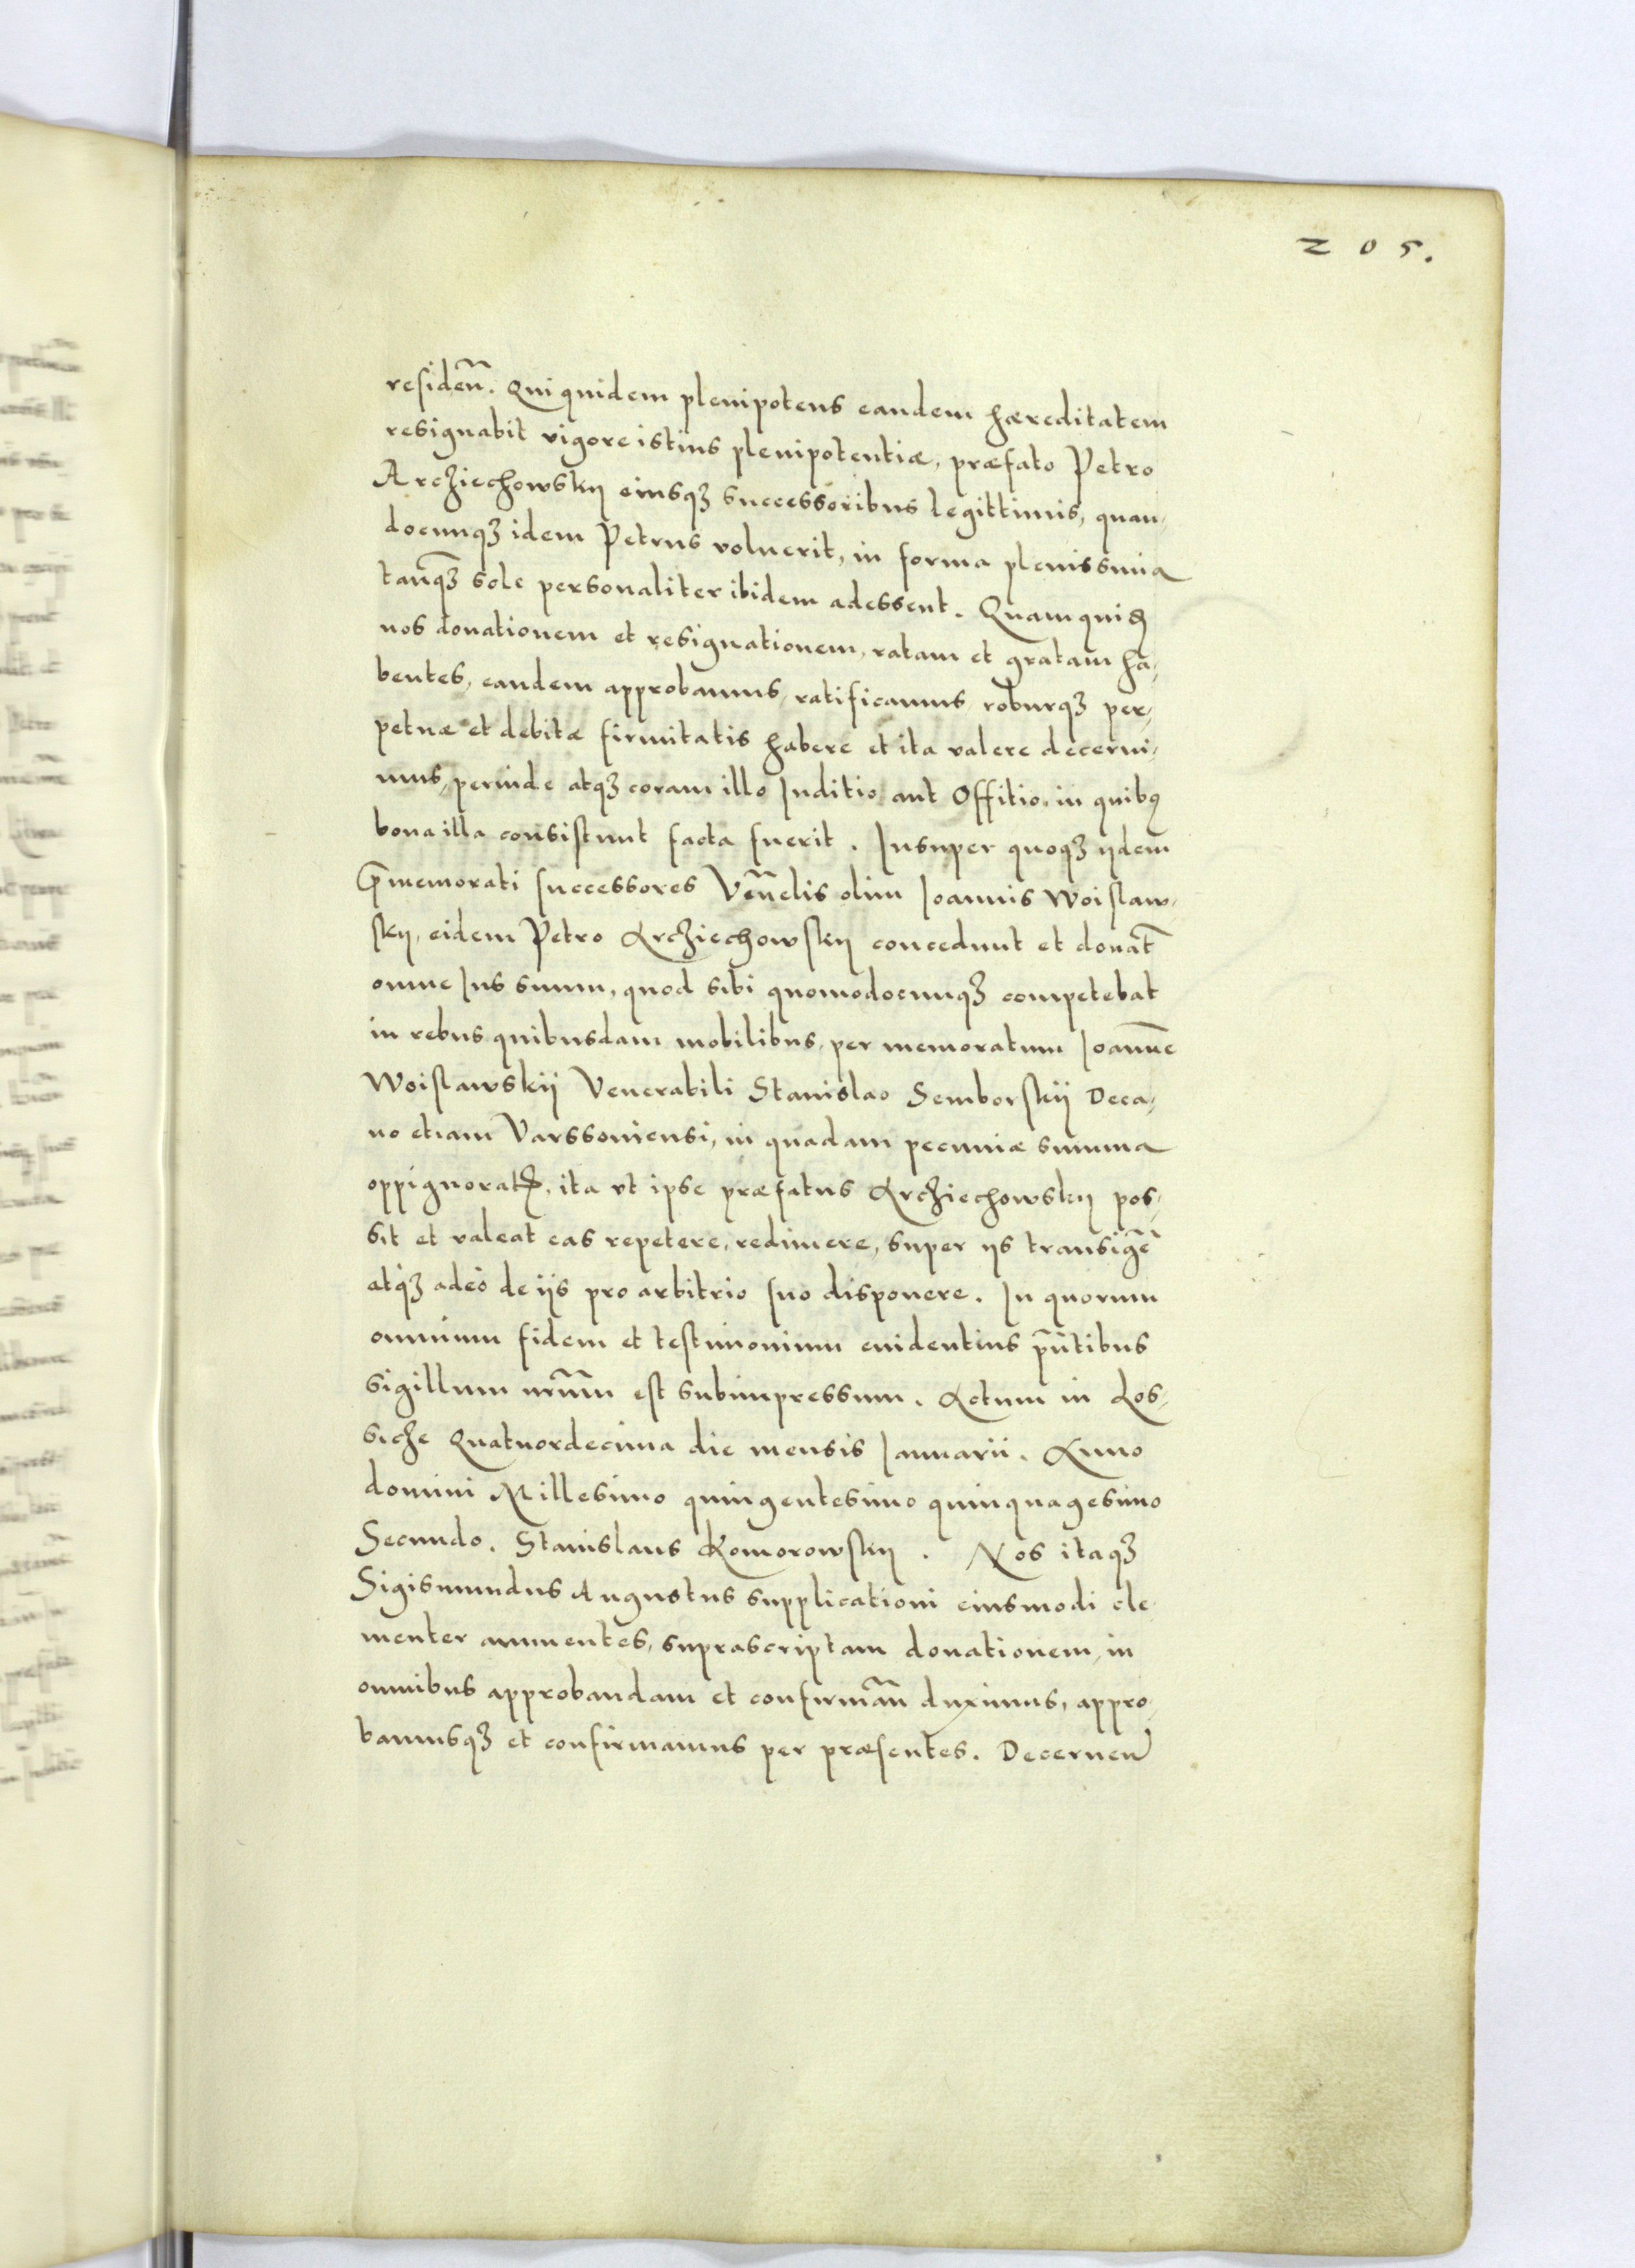 205.
residen̄. Qui quidem plenipotens eandem hæreditatem
resignabit vigore istius plenipotentiæ, præfato Petro
Arcziechowskij eiusqꝫ successoribus legittimis, quan-
docunqꝫ idem Petrus voluerit, in forma plenissima
tanqꝫ sole personaliter ibidem adessent. Quam quidē
nos donationem et resignationem, ratam et gratam ha-
bentes, eandem approbamus, ratificamus, roburqꝫ per-
petuæ et debitæ firmitatis habere et ita valere decerni-
mus, perinde atqꝫ coram illo Iuditio aut Offitio, in quibꝯ
bona illa consistunt facta fuerit. Insuper quoqꝫ ijdem
p̄memorati successores Ven̄elis olim Ioannis Woislaw-
skij, eidem Petro Arcziechowskij concedunt et donāt
omne Ius suum, quod sibi quomodocunqꝫ competebat
in rebus quibusdam mobilibus, per memoratum Ioannē
Woislawskij Venerabili Stanislao Semborskij Deca-
no etiam Varssoviensi, in quadam pecuniæ summa
oppignoratꝭ, ita vt ipse præfatus Arcziechowskij pos-
sit et valeat eas repetere, redimere, super ijs transigē
atqꝫ adeò de ijs pro arbitrio suo disponere. In quorum
omnium fidem et testimonium euidentius pn̄tibus
sigillum nr̄um est subimpressum. Actum in Los-
sicze Quatuordecima die mensis Ianuarii. Anno
domini Millesimo quingentesimo quinquagesimo
Secundo. Stanislaus Komorowskij. Nos itaqꝫ
Sigismundus Augustus supplicationi eiusmodi cle-
menter annuentes, suprascriptam donationem, in
omnibus approbandam et confirman̄ duximus, appro-
bamusqꝫ et confirmamus per præsentes. Decernen̄